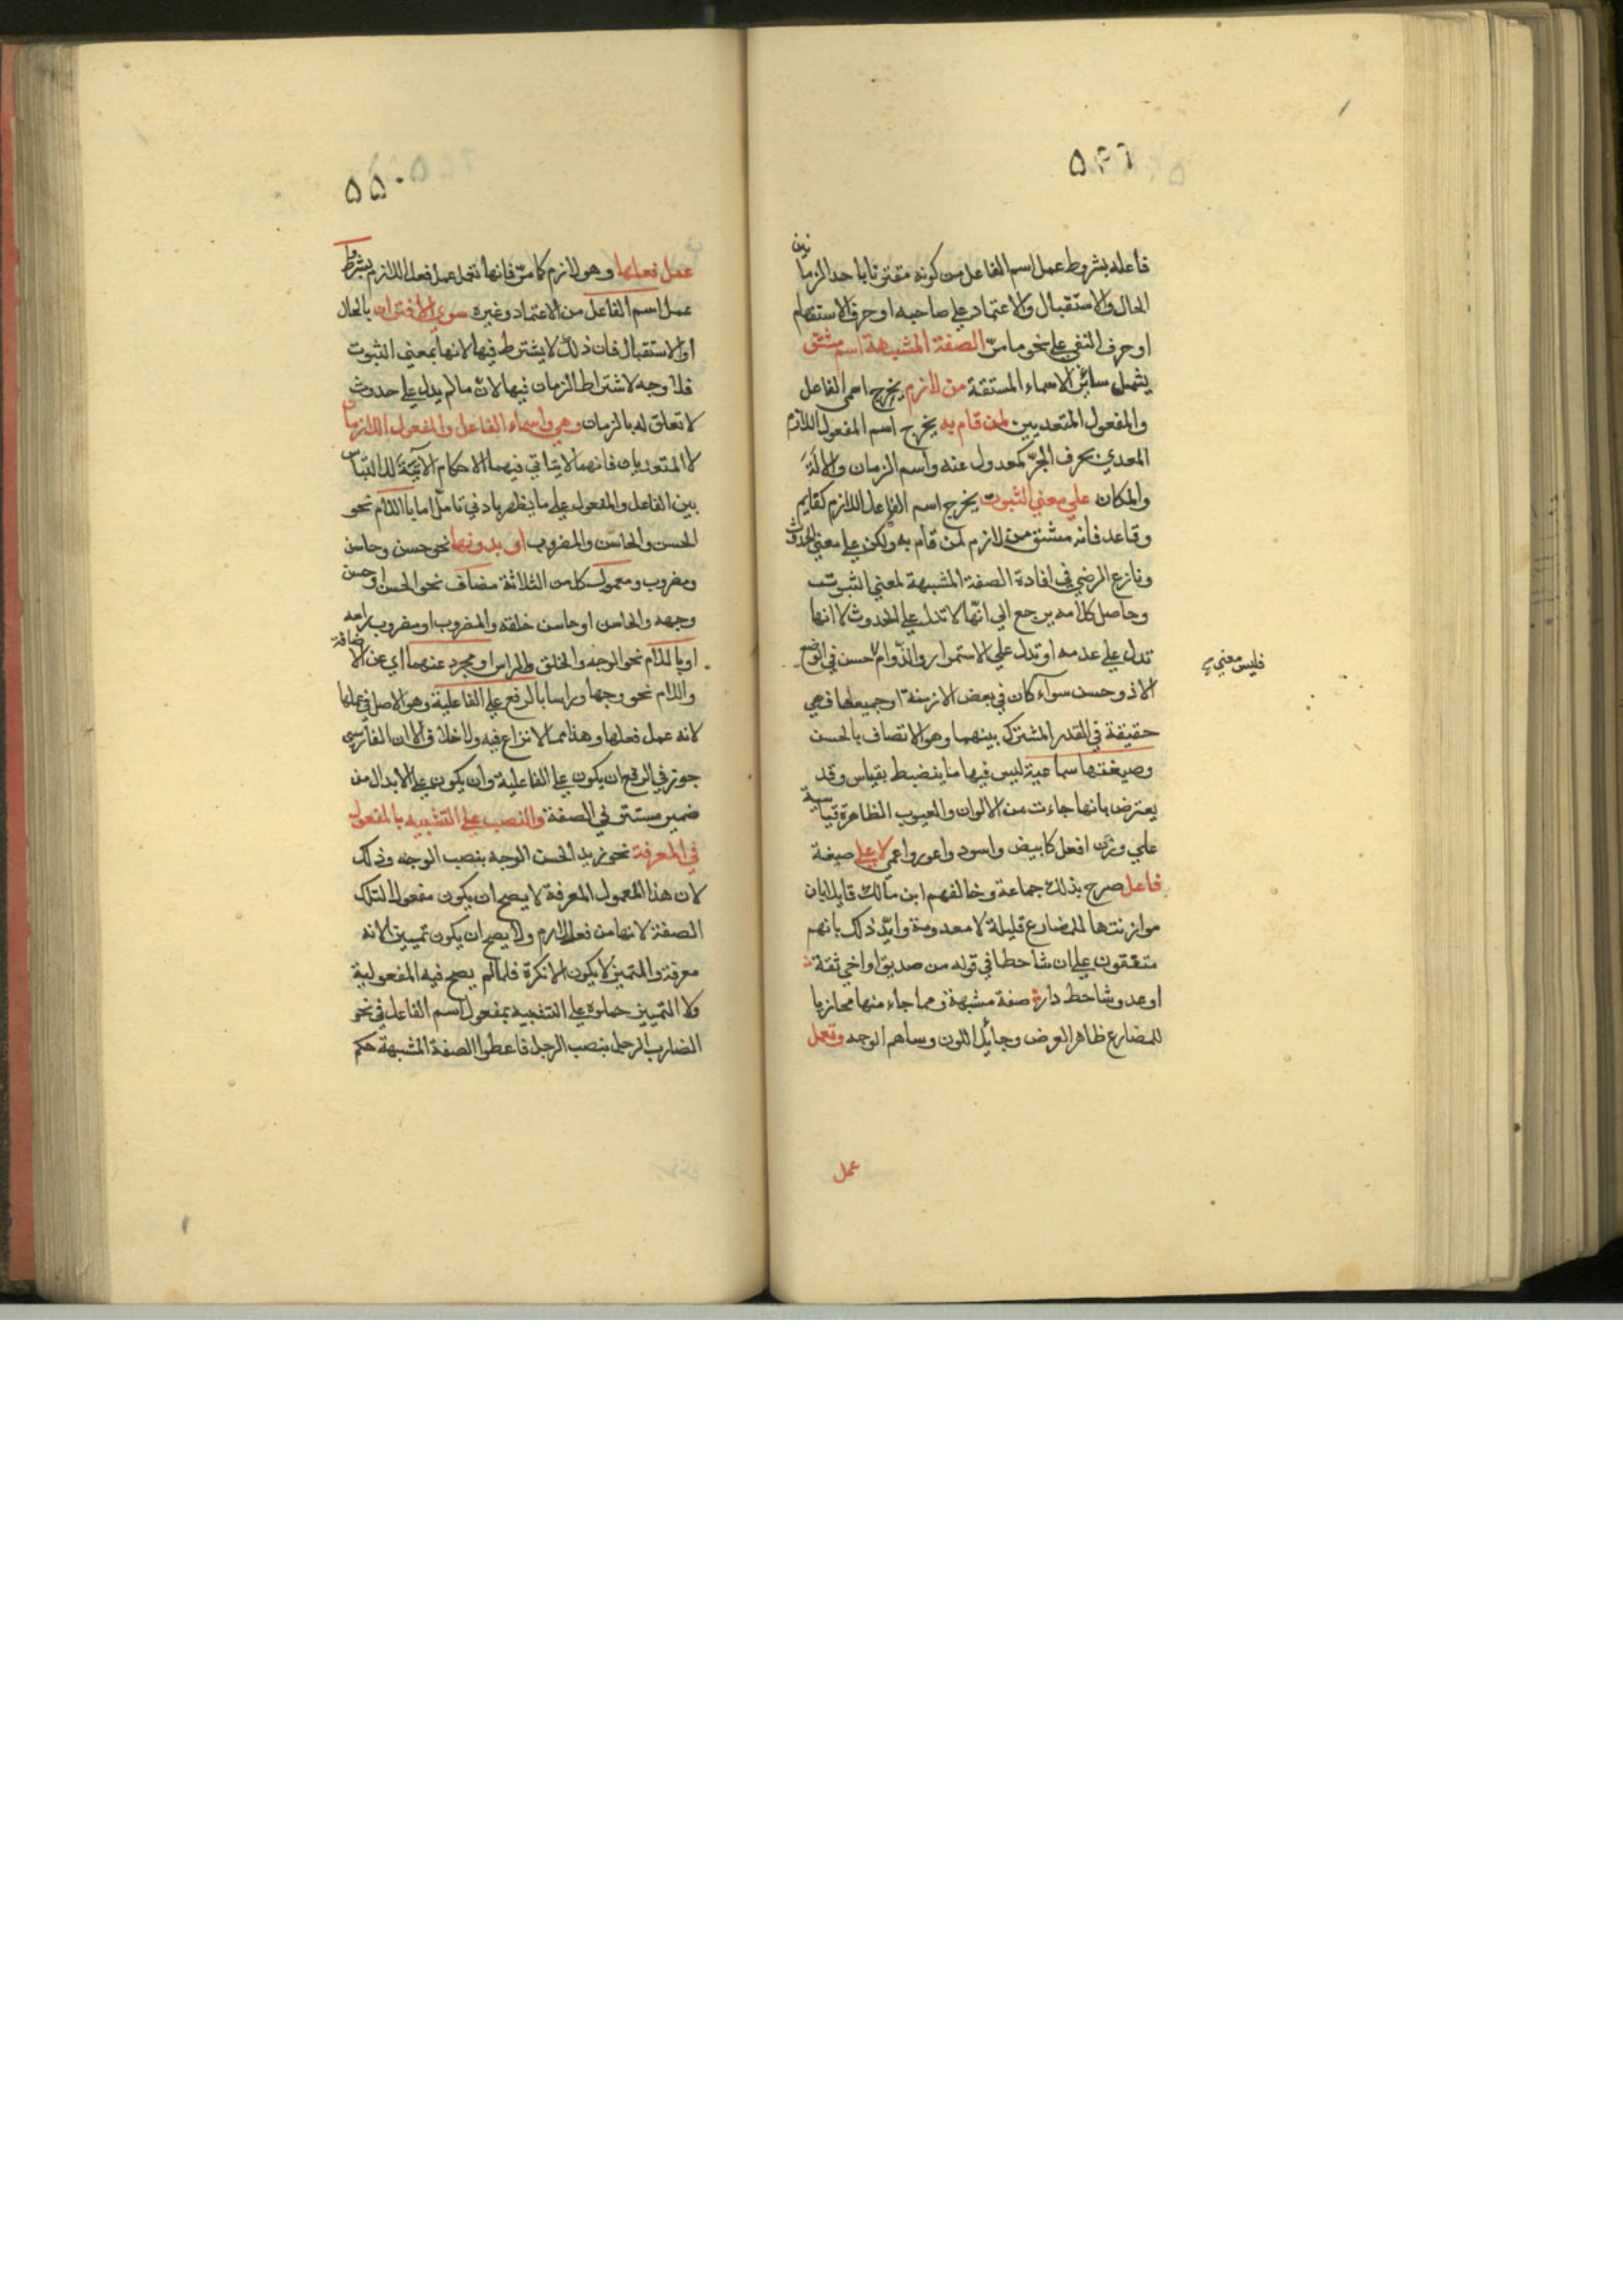 ٥٤٦
فاعله بشروط عمل اسم الفاعل من كونه مقترنا باحد الزمانين
الحال والاستقبال والاعتماد على صاحبه او حرف الاستفهام
او حرف النفي على نحو ما مرّ الصفة المشبهة اسم مشتق
يشمل سائر الاسماء المشتقة من لازم يخرج اسمي الفاعل
والمفعول المتعديين لمن قام به يخرج اسم المفعول اللازم
المعدي بحرف الجرّ كمعدول عنه واسم الزمان والالة
والمكان علي معني الثبوت يخرج اسم الفاعل اللازم كقايم
وقاعد فانه مشتق من لازم لمن قام به ولكن علي معني الحدوث
ونازع الرضي في افادة الصفة المشبهة لمعني الثبوت
وحاصل كلامه يرجع الي انّها لا تدل علي الحدوث لا انها
تدل علي عدمه او تدل علي الاستمرار والدّوام حسن في الوضع
فليس معني
الا ذو حسن سوآء كان في بعض الازمنة او جميعها فهي
حقيقة في القدر المشترك بينهما وهو الاتصاف بالحسن
وصيغتها سماعية ليس فيها ما ينضبط بقياس وقد
يعترض بانها جاءت من الالوان والعيوب الظاهرة قياسية
علي وزن افعل كابيض واسود واعور واعمي لا على صيغة
فاعل صرح بذلك جماعة وخالفهم ابن مالك قايلا بان
موازنتها للمضارع قليلة لا معدومة وايّد ذلك بانهم
متفقون على ان شاحطا في قوله من صديق او اخي ثقة
او عدو شاحط دار صفة مشبهة ومما جاء منها مجازيا
للمضارع ظاهر العرض وجايل اللون وساهم الوجه وتعمل
عمل
٥٥٠
عمل فعلها وهو لازم كما مرّ فانها تعمل عمل فعل اللازم بشروط
عمل اسم الفاعل من الاعتماد وغيره سوي الاقتران بالحال
او الاستقبال فان ذلك لا يشترط فيها لانها بمعني الثبوت
فلا وجه لاشتراط الزمان فيها لانّ ما لم يدل علي حدوث
لا تعلق له بالزمان وهي واسماء الفاعل والمفعول اللازمان
لا المتعديان فانهما لا يتاتي فيهما الاحكام الآتية للالتباس
بين الفاعل والمفعول علي ما يظهر بادني تامل اما باللام نحو
الحسن والحاسن والمضروب او بدونها نحو حسن وحاسن
ومضروب ومعمول كل من الثلاثة مضاف نحو الحسن او حسن
وجهه والحاسن او حاسن خلقه والمضروب او مضروب راسه
او باللام نحو الوجه والخلق والراس او مجرد عنهما اي عن الاضافة
واللام نحو وجها وراسا بالرفع علي الفاعلية وهو الاصل في عملها
لانه عمل فعلها وهذا مما لا نزاع فيه ولا خلاف الا ان الفارسي
جوز في الرفع ان يكون علي الفاعلية وان يكون علي الابدال من
ضمير مستتر في الصفة والنصب علي التشبيه بالمفعول
في المعرفة نحو زيد الحسن الوجه بنصب الوجه وذلك
لان هذا المعمول المعرفة لا يصح ان يكون مفعولا لتلك
الصفة لانها من فعل لازم ولا يصح ان يكون تمييز لانه
معرفة والتمييز لا يكون الا نكرة فلما لم يصح فيه المفعولية
ولا التمييز حملوه علي التشبيه بمفعول اسم الفاعل في نحو
الضارب الرجل بنصب الرجل فاعطوا الصفة المشبهة حكم